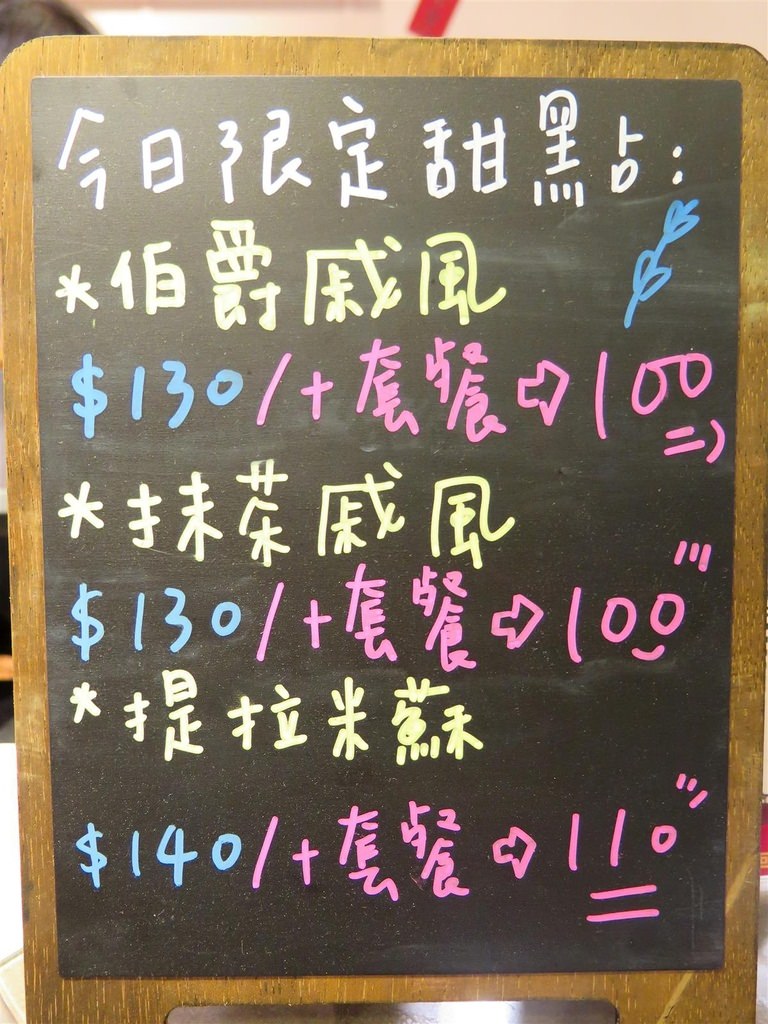 今日限定甜點:
*伯爵戚風
$130/+套餐⇨100
*抹茶戚風
$130/+套餐⇨100
*提拉米蘇
$140/+套餐⇨110